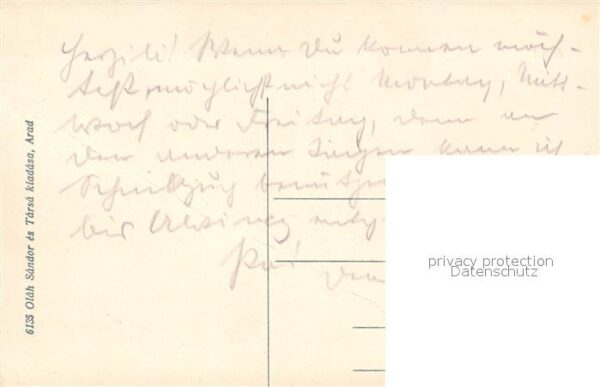 Herzili! Wenn Du kommen möch-
test, möglichst nicht Montag, Mitt-
woch oder Freitag, denn an
den anderen Tagen kann ich
Schnellzug benützen
bis
Pu!
6135 Oláh Sándor és Társá kiadása, Arad
privacy protection
Datenschutz